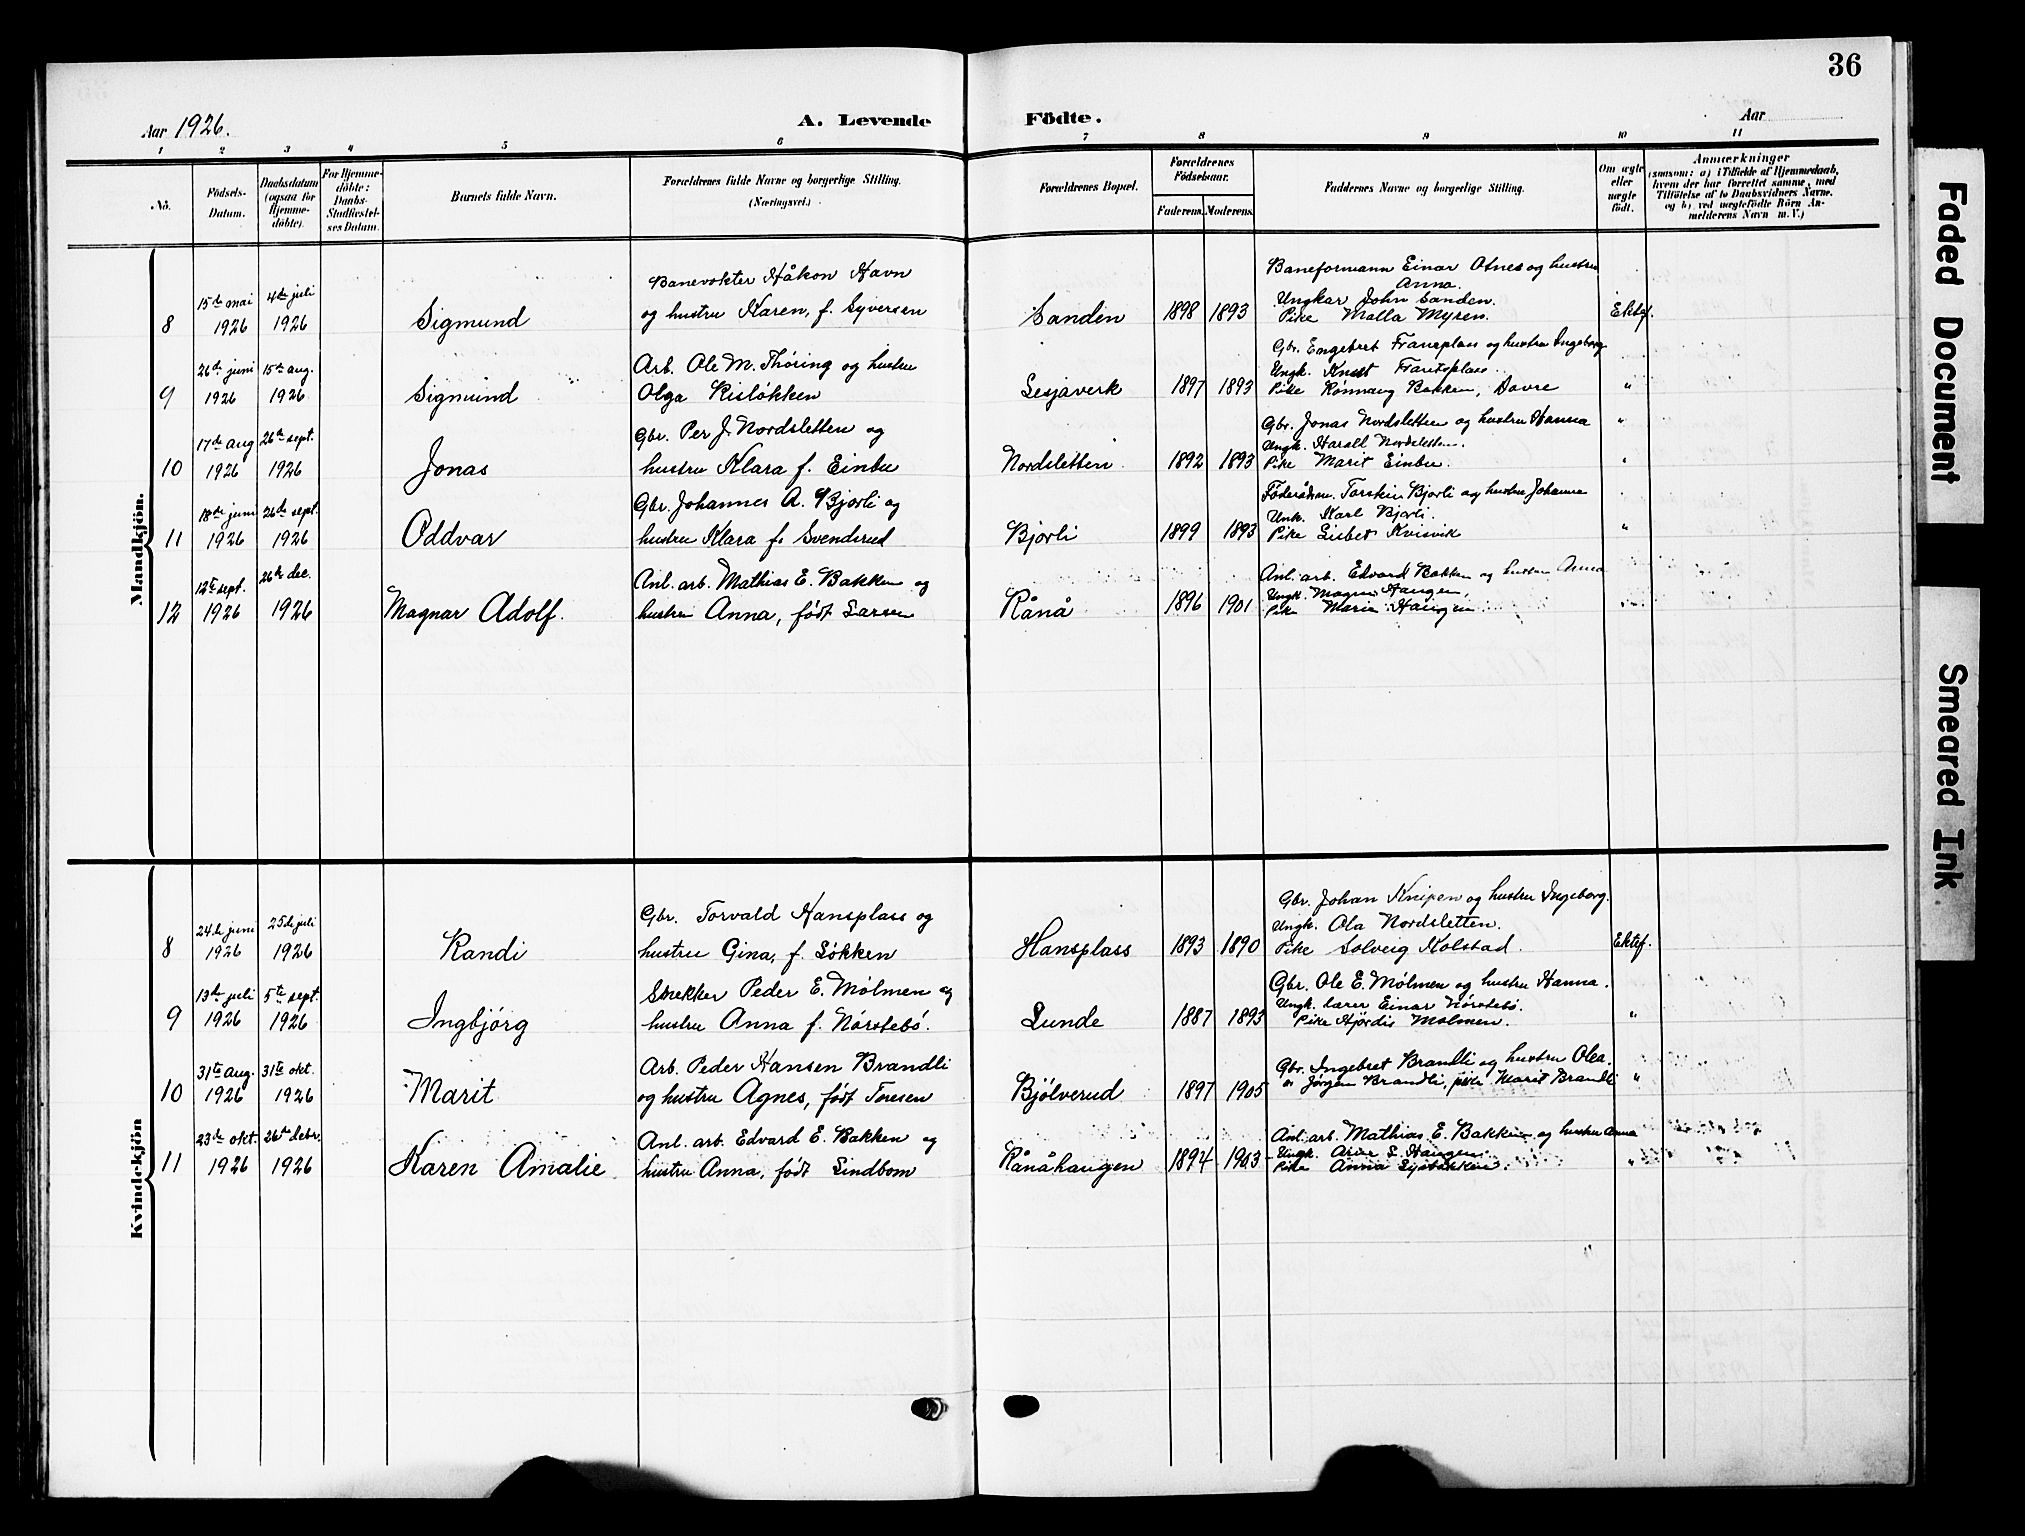 36
Aar 1926.
A. Levende Födte.
Aar
1 2 3 4 5 6 7 8 9 10 11
No.
Födsels-Datum.
Daabsdatum (ogsaa for Hjemmedöbte).
For Hjemmedöbte: Daabs-Stadfæstelses Datum.
Barnets fulde Navn.
Forældrenes fulde Navne og borgerlige Stilling. (Næringsvei.)
Forældrenes Bopæl.
Forældrenes Födselsaar.
Faderens. Moderens.
Faddernes Navne og borgerlige Stilling.
Om ægte eller uægte födt.
Anmærkninger
(saasom: a) i Tilfælde af Hjemmedaab, hvem der har forrettet samme, med Tilföielse af to Daabsvidners Navne. og b) ved uægtefödte Börn Anmelderens Navn m. V.)
Mandkjön.
8
15de mai 1926
4de juli 1926
Sigmund
Banevokter Håkon Havn
og hustru Karen, f. Syversen
Sanden
1898 1893
Baneformann Einar Otnes og hustru
Anna.
Ungkar John Sanden.
Pike Malla Myren.
Ektef.
9
26de juni 1926
15de aug. 1926
Sigmund
Arb. Ole M. Thøring og hustru
Olga Risløkken
Lesjaverk
1897 1893
Gbr. Engebret Fransplass og hustru Ingeborg
Ungk. Knut
Pike Rønnaug Bakken, Dovre
"
10
17de aug 1926
26de sept. 1926
Jonas
Gbr. Per J. Nordsletten og
hustru Klara f. Einbu
Nordsletten
1892 1893
Gbr. Jonas Nordsletten og hustru Hanna
Ungk. Harall Nordsletten.
Pike Marit Einbu.
"
11
18de juni 1926
26de sept. 1926
Oddvar
Gbr. Johannes A. Bjorli og
hustru Klara f. Svendsrud
Bjorli
1899 1893
Föderådsm. Torstein Bjorli og hustru Johanne
Unk. Karl Bjorli.
Pike Lisbet Kvisvik
"
12
12te sept. 1926
26de dec. 1926
Magnar Adolf.
Anl. arb. Mathias E. Bakken og
hustru Anna, født Larsen
Rånå
1896 1901
Anl. arb. Edvard Bakken og hustru Anna
Ungk. Magnus Haugen,
Pike Marie Haugen
"
Kvindekjön
8
24de juni 1926
25de juli 1926
Randi
Gbr. Torvald Hansplass og
hustru Gina, f. Løkken
Hansplass
1893 1890
Gbr. Johan Kneipen og hustru Ingeborg.
Ungk. Ola Nordsletten.
Pike Solveig Kolstad.
Ektef.
9
13de juli 1926
5te sept. 1926
Ingbjörg
Snekker Peder E. Mølmen og
hustru Anna f. Nørstebö.
Lunde
1887 1893
Gbr. Ole E. Mølmen og hustru Hanna.
Ungk. lærer Einar Nørstebø.
Pike Hjørdis Mølmen.
"
10
31te aug. 1926
31te okt. 1926
Marit
Arb. Peder Hansen Brandli
og hustru Agnes, født Toresen
Bjölverud
1897 1905
Gbr. Ingebret Brandli og hustru Olea.
Jørgen Brandli, pike Marit Brandli
"
11
23de okt. 1926
26de debr. 1926
Karen Amalie
Anl. arb. Edvard E. Bakken og
hustru Anna, født Lindbom
Rånåhaugen
1894 1903
Anl. arb. Mathias E. Bakken og hustru Anna
Ungk. Arne L. Haugen.
Pike Anna
"
Faded Document
Smeared Ink